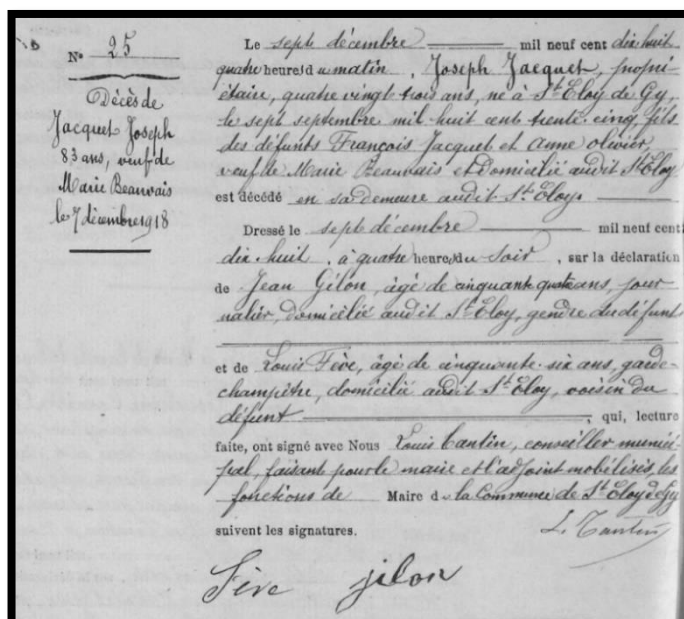 N° 25
Décès de
Jacquet Joseph
83 ans, veuf de
Marie Beauvais
le 7 décembre 1918
Le sept décembre mil neuf cent dix huit
quatre heures du matin, Joseph Jacquet, propri-
étaire, quatre vingt trois ans, né à St Eloy de Gy,
le sept septembre mil huit cent trente-cinq, fils
des défunts François Jacquet et Anne Olivier,
veuf de Marie Beauvais et domicilié audit St Eloy
est décédé en sa demeure audit St Eloy.
Dressé le sept décembre mil neuf cent
dix-huit, à quatre heures du soir, sur la déclaration
de Jean Gilon, âgé de cinquante quatre ans, jour-
nalier, domicilié audit St Eloy, gendre du défunt
et de Louis Fève, âgé de cinquante-six ans, garde-
champêtre, domicilié audit St Eloy, voisin du
défunt, qui, lecture
faite, ont signé avec Nous Louis Cantin, conseiller munici-
pal, faisant pour le maire et l'adjoint mobilisés, les
fonctions de Maire de la Commune de St Eloy de Gy
suivent les signatures.
L. Cantin
Fève jilon